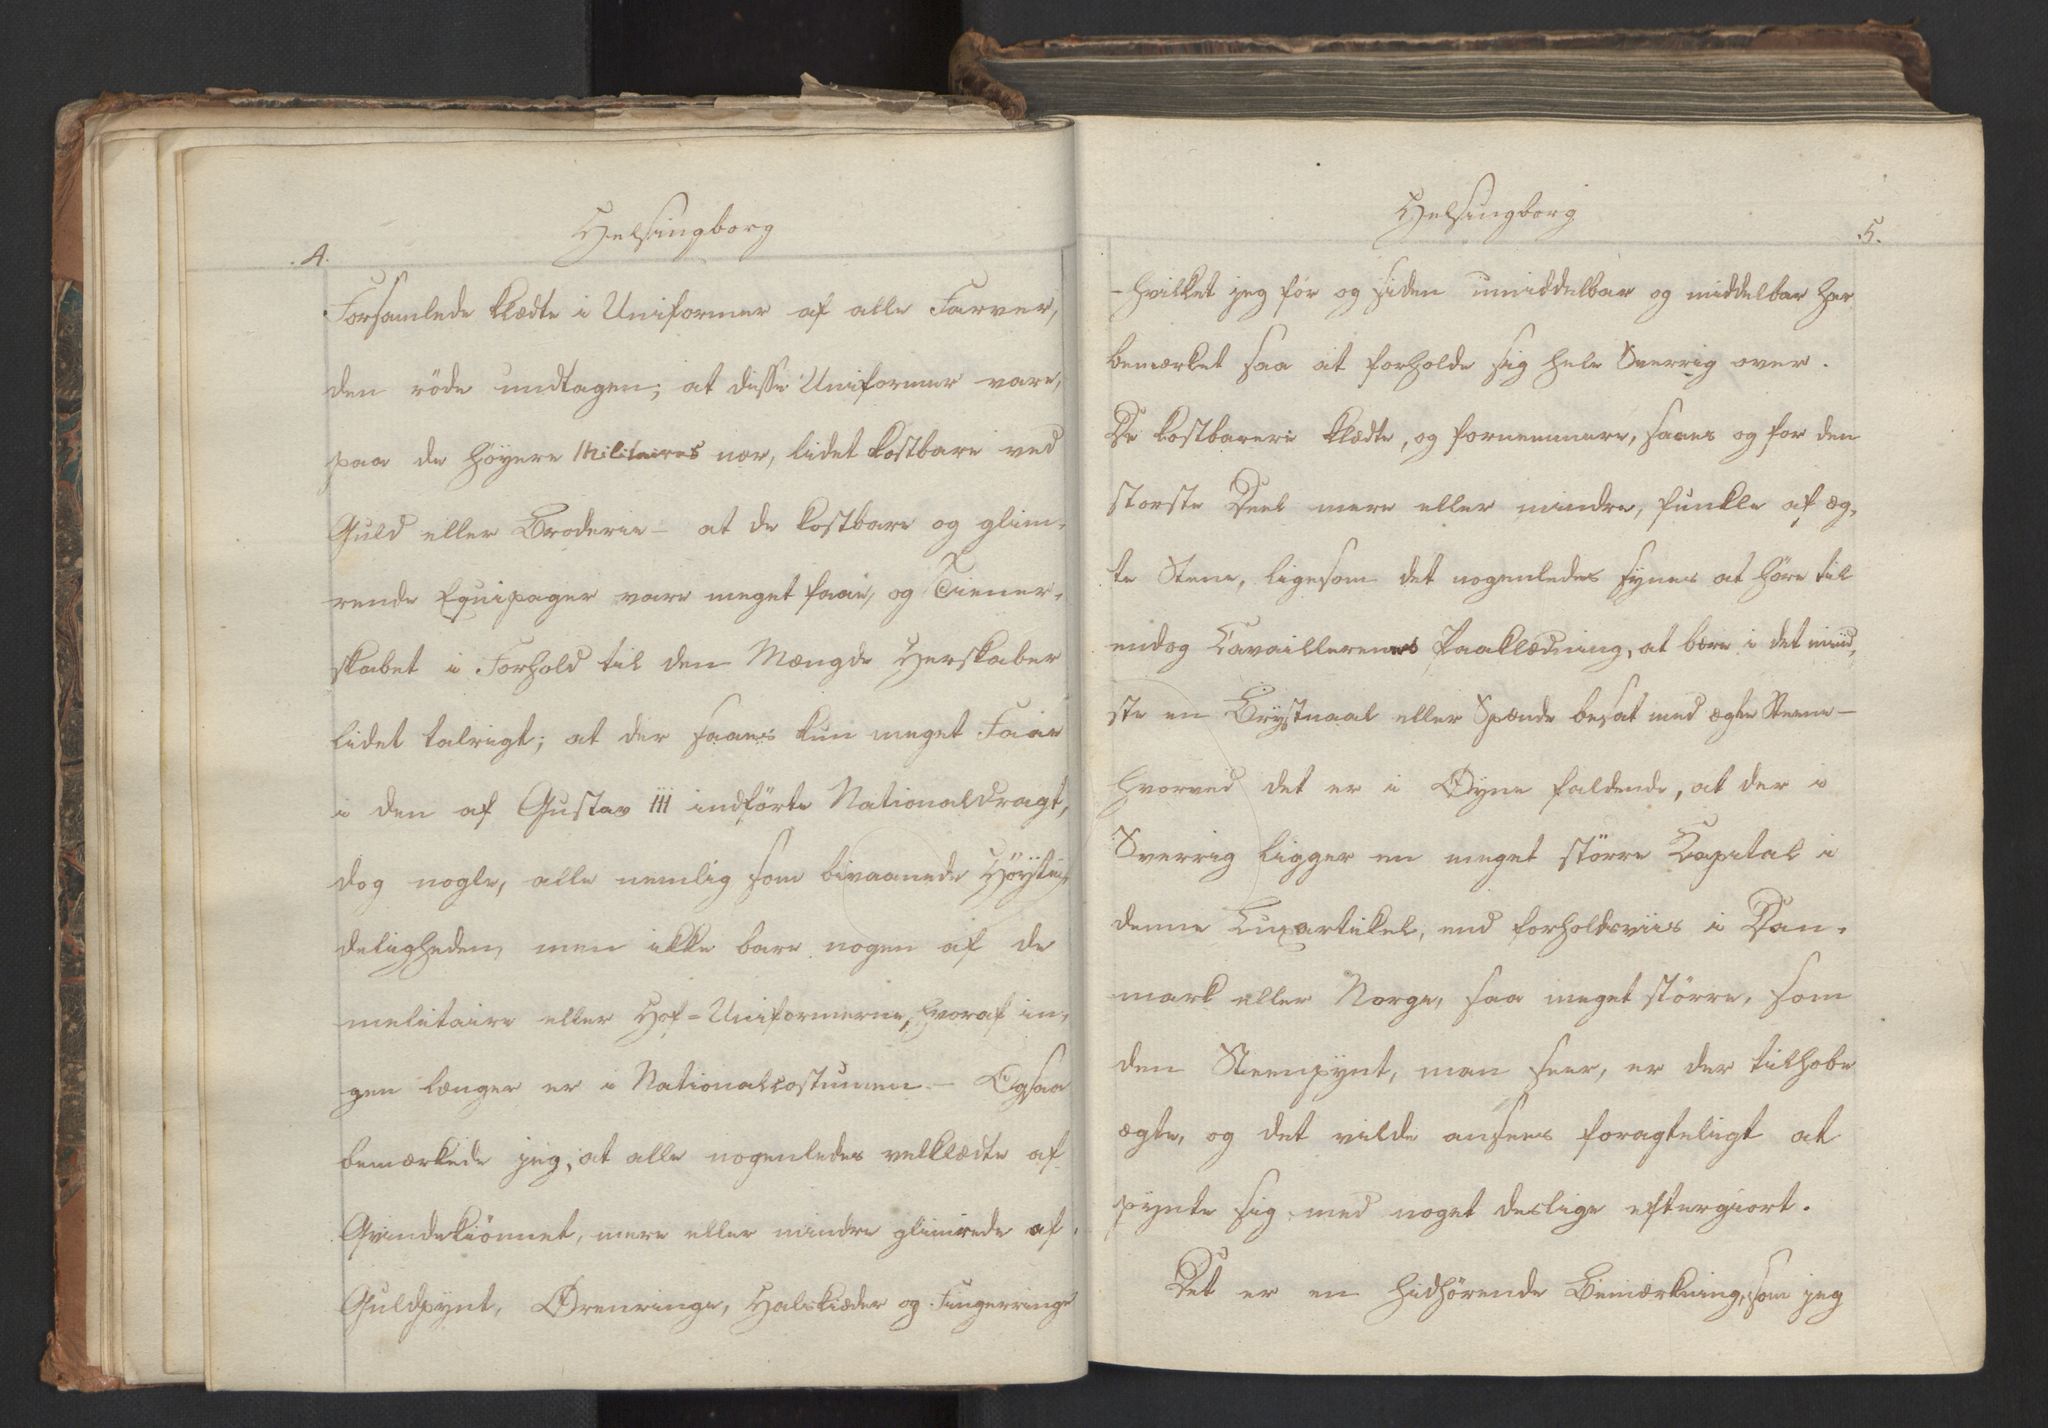 Helsingborg
.4.
Forsamlede klædte i Uniformer af alle Farver,
den röde undtagen; at disse Uniformer vare,
paa de höyere Militaires nær, lidet kostbare ved
Guld eller Broderie – at de kostbare og glim-
rende Equipager vare meget faae, og Tiener-
skabet i Forhold til den Mængde Herskaber
lidet talrigt; at der saaes kun meget Faae
i den af Gustav III indförte Nationaldragt,
dog nogle, alle nemlig som bivaanede Höytii-
deligheden, men ikke bare nogen af de
melitaire eller Hof-Uniformerne, hvoraf in-
gen længer er i Nationalcostumen – Ogsaa
bemærkede jeg, at alle nogenledes velklædte af
Qvindekiönnet, mere eller mindre glimrede af
Guldpynt, Ørenringe, Halskiæder og Fingerringe
Helsingborg
.5.
– hvilket jeg för og siden umiddelbar og middelbar har
bemærket saa at forholde sig hele Sverrig over.
De kostbarere klædte, og fornemmere, saaes og for den
störste Deel mere eller mindre, funkle af æg-
te Stene, ligesom det nogenledes synes at höre til
endog Cavaillerernes Paaklædning, at bære i det mind-
ste en Brystnaal eller Spænde besat med ægte Steene –
hvorved det er i Øyne faldende, at der i
Sverrig ligger en meget större Capital i
denne Luxartikel, end forholdsviis i Dan-
mark eller Norge, saa meget större, som
den Steenpynt, man seer, er der tilhobe
ægte, og det vilde ansees foragteligt at
pynte sig med noget deslige eftergiort.
Det er en hidhörende Bemærkning, som jeg